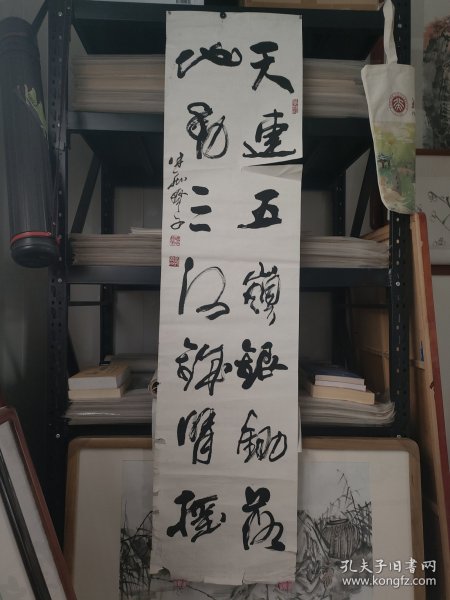 天连五嶺銀鋤落
地動三河鐵臂摇
孔夫子旧书网
www.kongfz.com